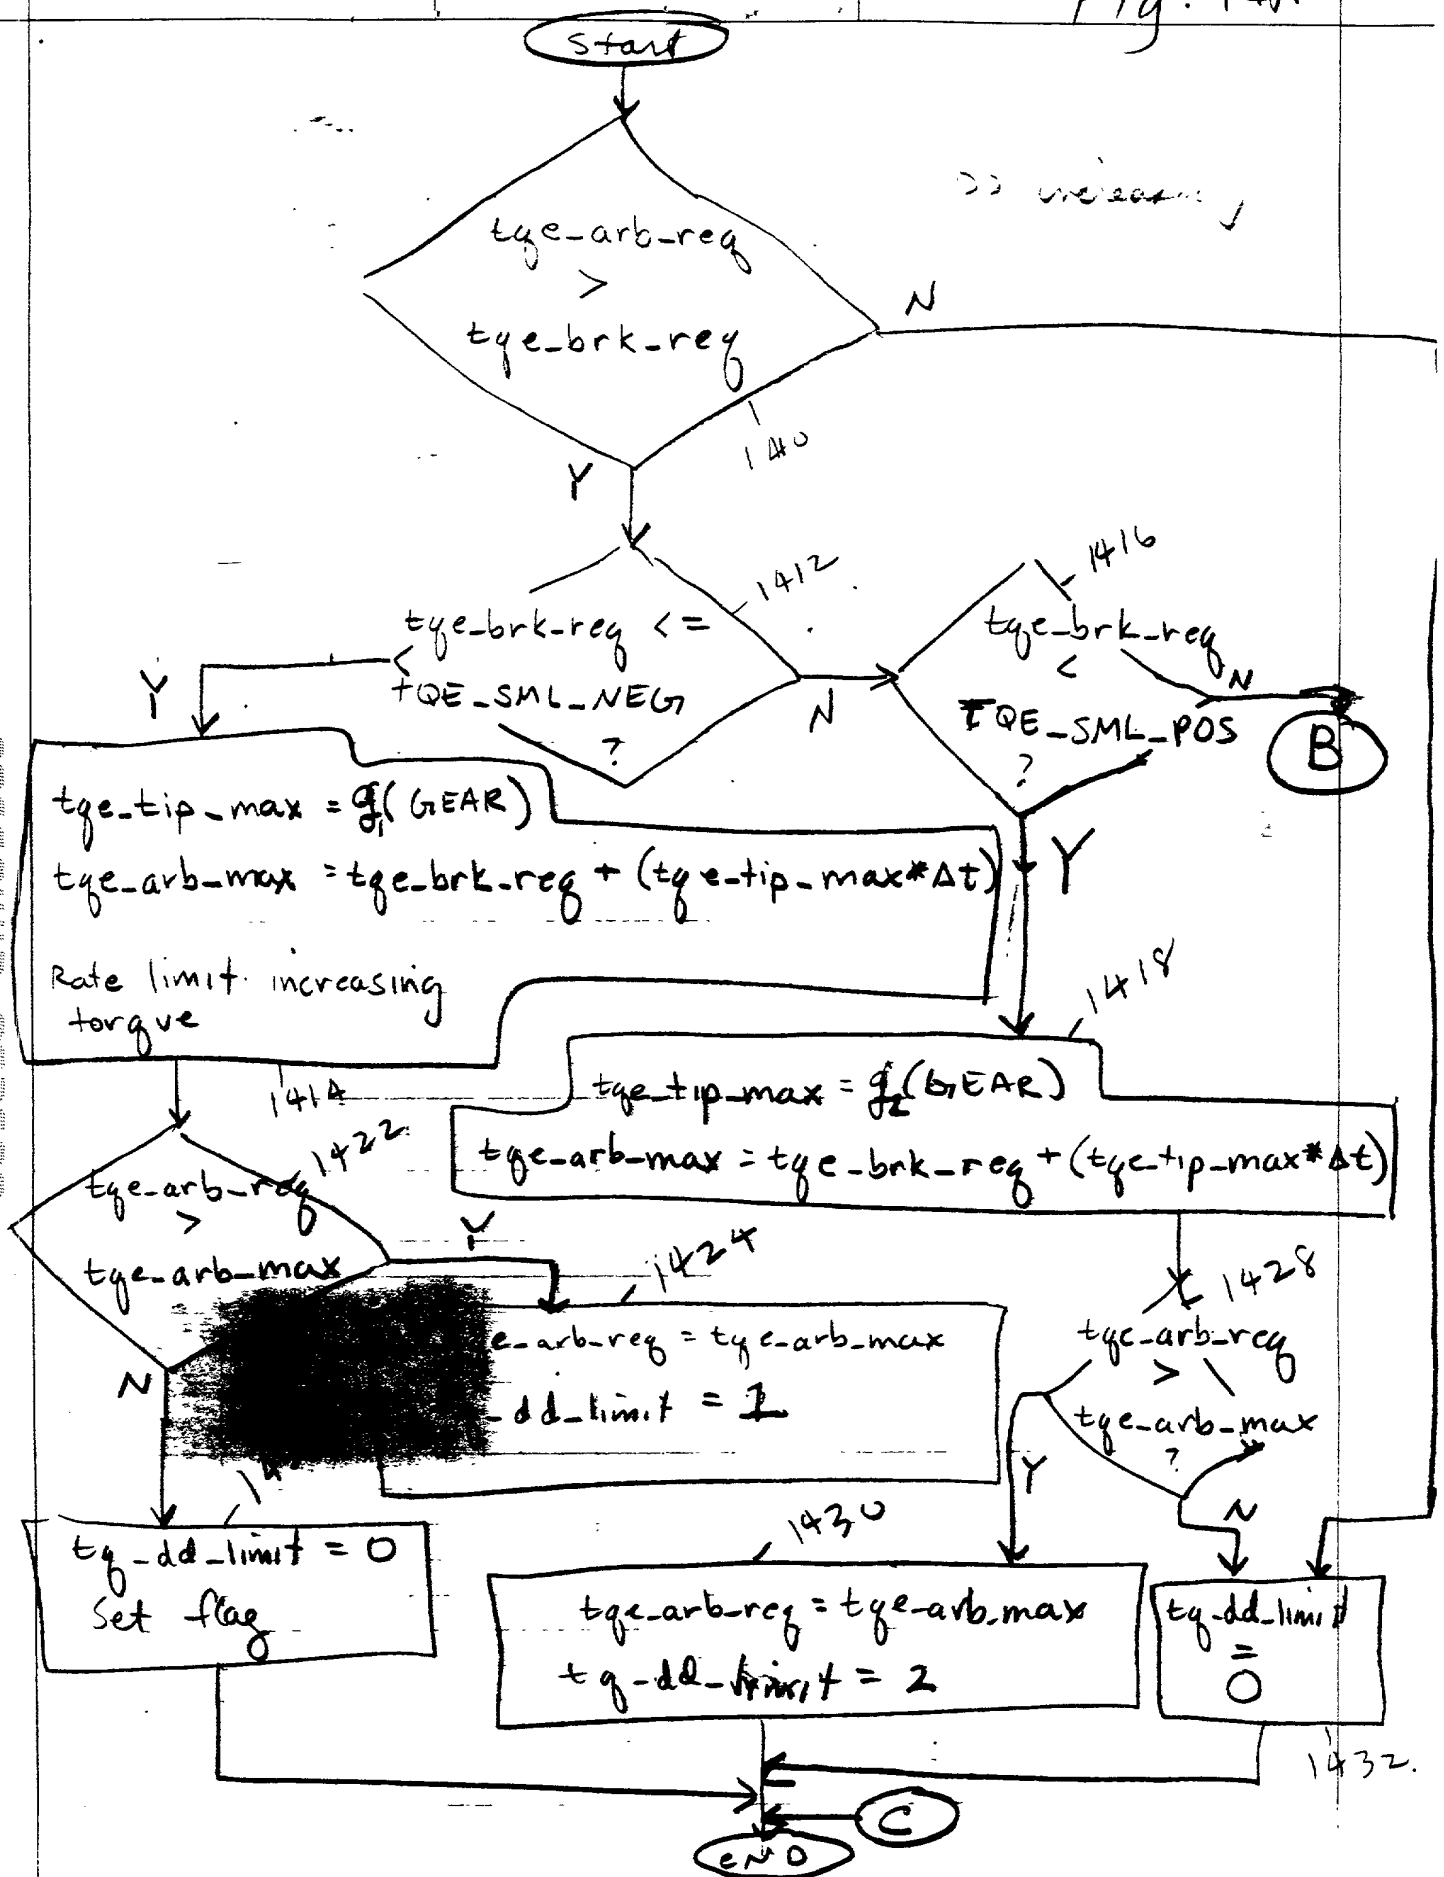 Start
tqe_arb_req
>
tqe_brk_req
N
Y
1412
1416
tqe_brk_req <=
TQE_SML_NEG
?
Y
N
tqe_brk_req
<
TQE_SML_POS
?
N
B
Y
tqe_tip_max = g1(GEAR)
tqe_arb_max = tqe_brk_req + (tqe_tip_max*Δt)
Rate limit increasing
torque
1414
1418
tqe_tip_max = g2(GEAR)
tqe_arb_max = tqe_brk_req + (tqe_tip_max*Δt)
1422
tqe_arb_req
>
tqe_arb_max
Y
N
1424
e_arb_req = tqe_arb_max
_dd_limit = 1
1428
tqe_arb_req
>
tqe_arb_max
?
Y
N
tq_dd_limit = 0
Set flag
1430
tqe_arb_req = tqe_arb_max
tq_dd_limit = 2
tq_dd_limit
=
0
1432.
C
END